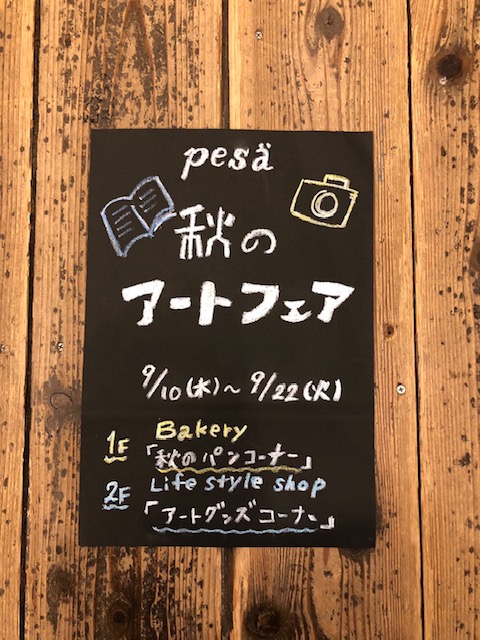 pesä
秋の
アートフェア
9/10(木)~9/22(火)
1F Bakery
「秋のパンコーナー」
2F Life style shop
「アートグッズコーナー」